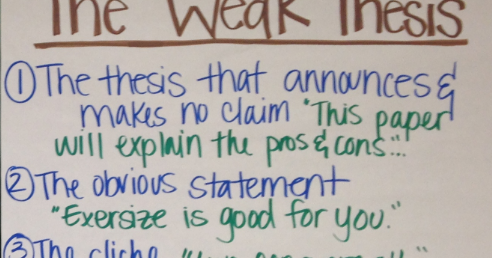 The Weak Thesis
① The thesis that announces &
makes no claim "This paper
will explain the pros & cons..."
② The obvious statement
"Exersize is good for you."
③ The cliche